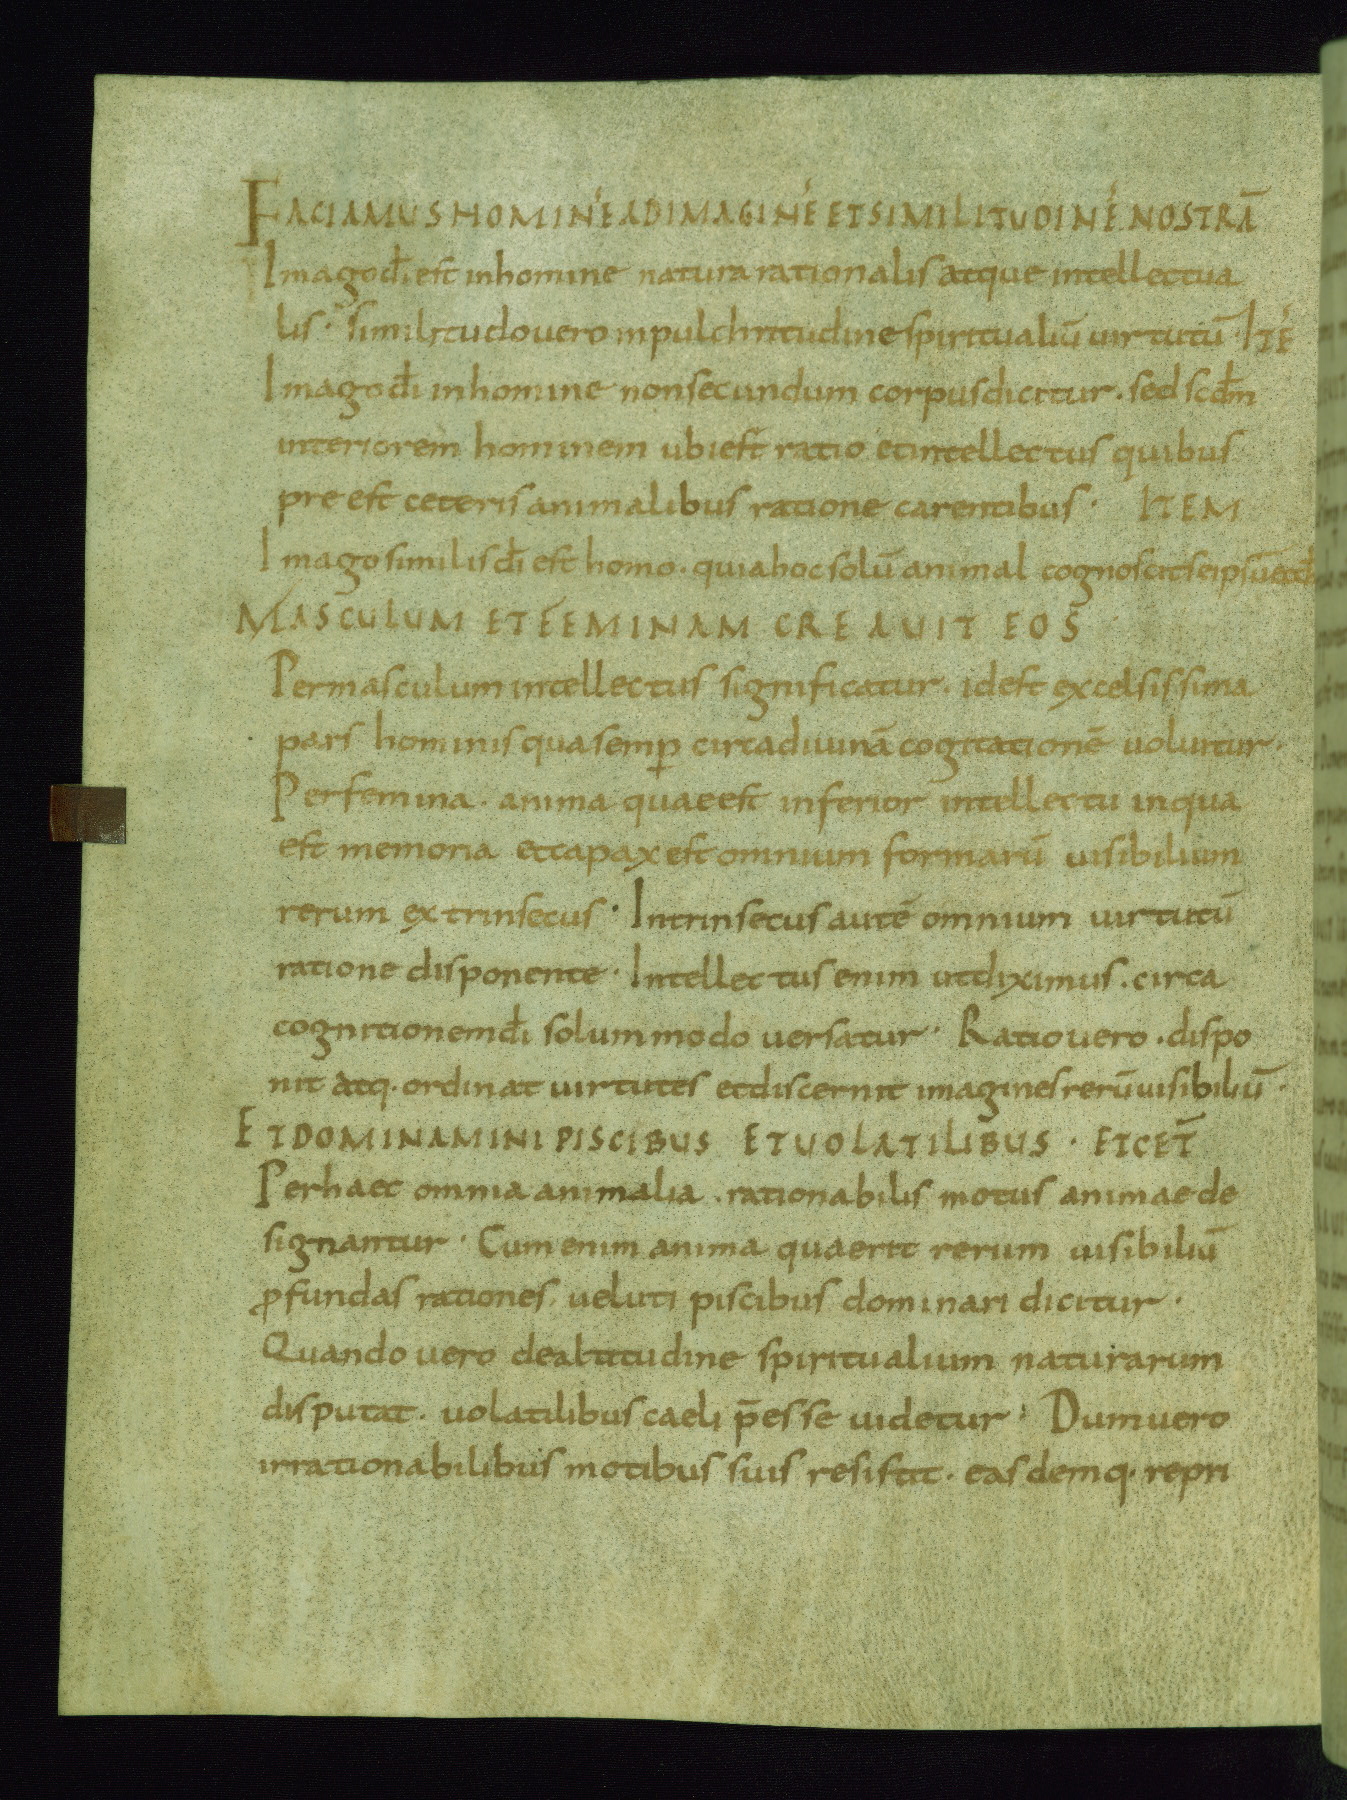 FACIAMUS HOMINĒ AD IMAGINĒ ET SIMILITUDINĒ NOSTRĀ
Imago dī est in homine natura rationalis atque intellectua
lis· similitudo vero in pulchritudine spiritualiū uirtutū· ITĒ
Imago dī in homine non secundum corpus dicitur· sed scdm̄
interiorem hominem ubi est ratio et intellectus quibus
pre est ceteris animalibus ratione carentibus· ITEM
Imago similis dī est homo· quia hoc solū animal cognoscit seipsū et dm̄
MASCULUM ET FEMINAM CREAUIT EOS
Per masculum intellectus significatur· id est excelsissima
pars hominis qua semp̄ circa diuinā cogitationē voluitur·
Per femina· anima quae est inferior intellectu in qua
est memoria et capax est omnium formarū uisibilium
rerum extrinsecus· Intrinsecus autē omnium uirtutū
ratione disponente· Intellectus enim ut diximus· circa
cognitionem dī solummodo uersatur· Ratio uero· dispo
nit atq· ordinat uirtutes et discernit imagines rerū uisibiliū·
ET DOMINAMINI PISCIBUS ET UOLATILIBUS· ET CET̄
Per haec omnia animalia· rationabilis motus animae de
signantur· Cum enim anima quaerit rerum uisibiliū
ꝓfundas rationes· ueluti piscibus dominari dicitur·
Quando uero de altitudine spiritualium naturarum
disputat· uolatilibus caeli p̄esse uidetur· Dum uero
irrationabilibus motibus suis resistit· easdemq· repri